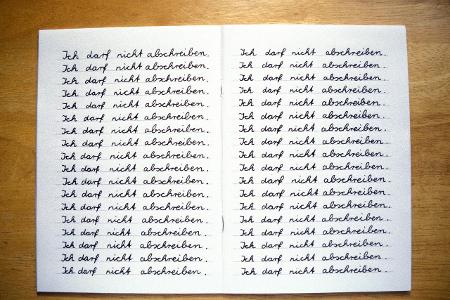 Ich darf nicht abschreiben.
Ich darf nicht abschreiben.
Ich darf nicht abschreiben.
Ich darf nicht abschreiben.
Ich darf nicht abschreiben.
Ich darf nicht abschreiben.
Ich darf nicht abschreiben.
Ich darf nicht abschreiben.
Ich darf nicht abschreiben.
Ich darf nicht abschreiben.
Ich darf nicht abschreiben.
Ich darf nicht abschreiben.
Ich darf nicht abschreiben.
Ich darf nicht abschreiben.
Ich darf nicht abschreiben.
Ich darf nicht abschreiben.
Ich darf nicht abschreiben.
Ich darf nicht abschreiben.
Ich darf nicht abschreiben.
Ich darf nicht abschreiben.
Ich darf nicht abschreiben.
Ich darf nicht abschreiben.
Ich darf nicht abschreiben.
Ich darf nicht abschreiben.
Ich darf nicht abschreiben.
Ich darf nicht abschreiben.
Ich darf nicht abschreiben.
Ich darf nicht abschreiben.
Ich darf nicht abschreiben.
Ich darf nicht abschreiben.
Ich darf nicht abschreiben.
Ich darf nicht abschreiben.
Ich darf nicht abschreiben.
Ich darf nicht abschreiben.
Ich darf nicht abschreiben.
Ich darf nicht abschreiben.